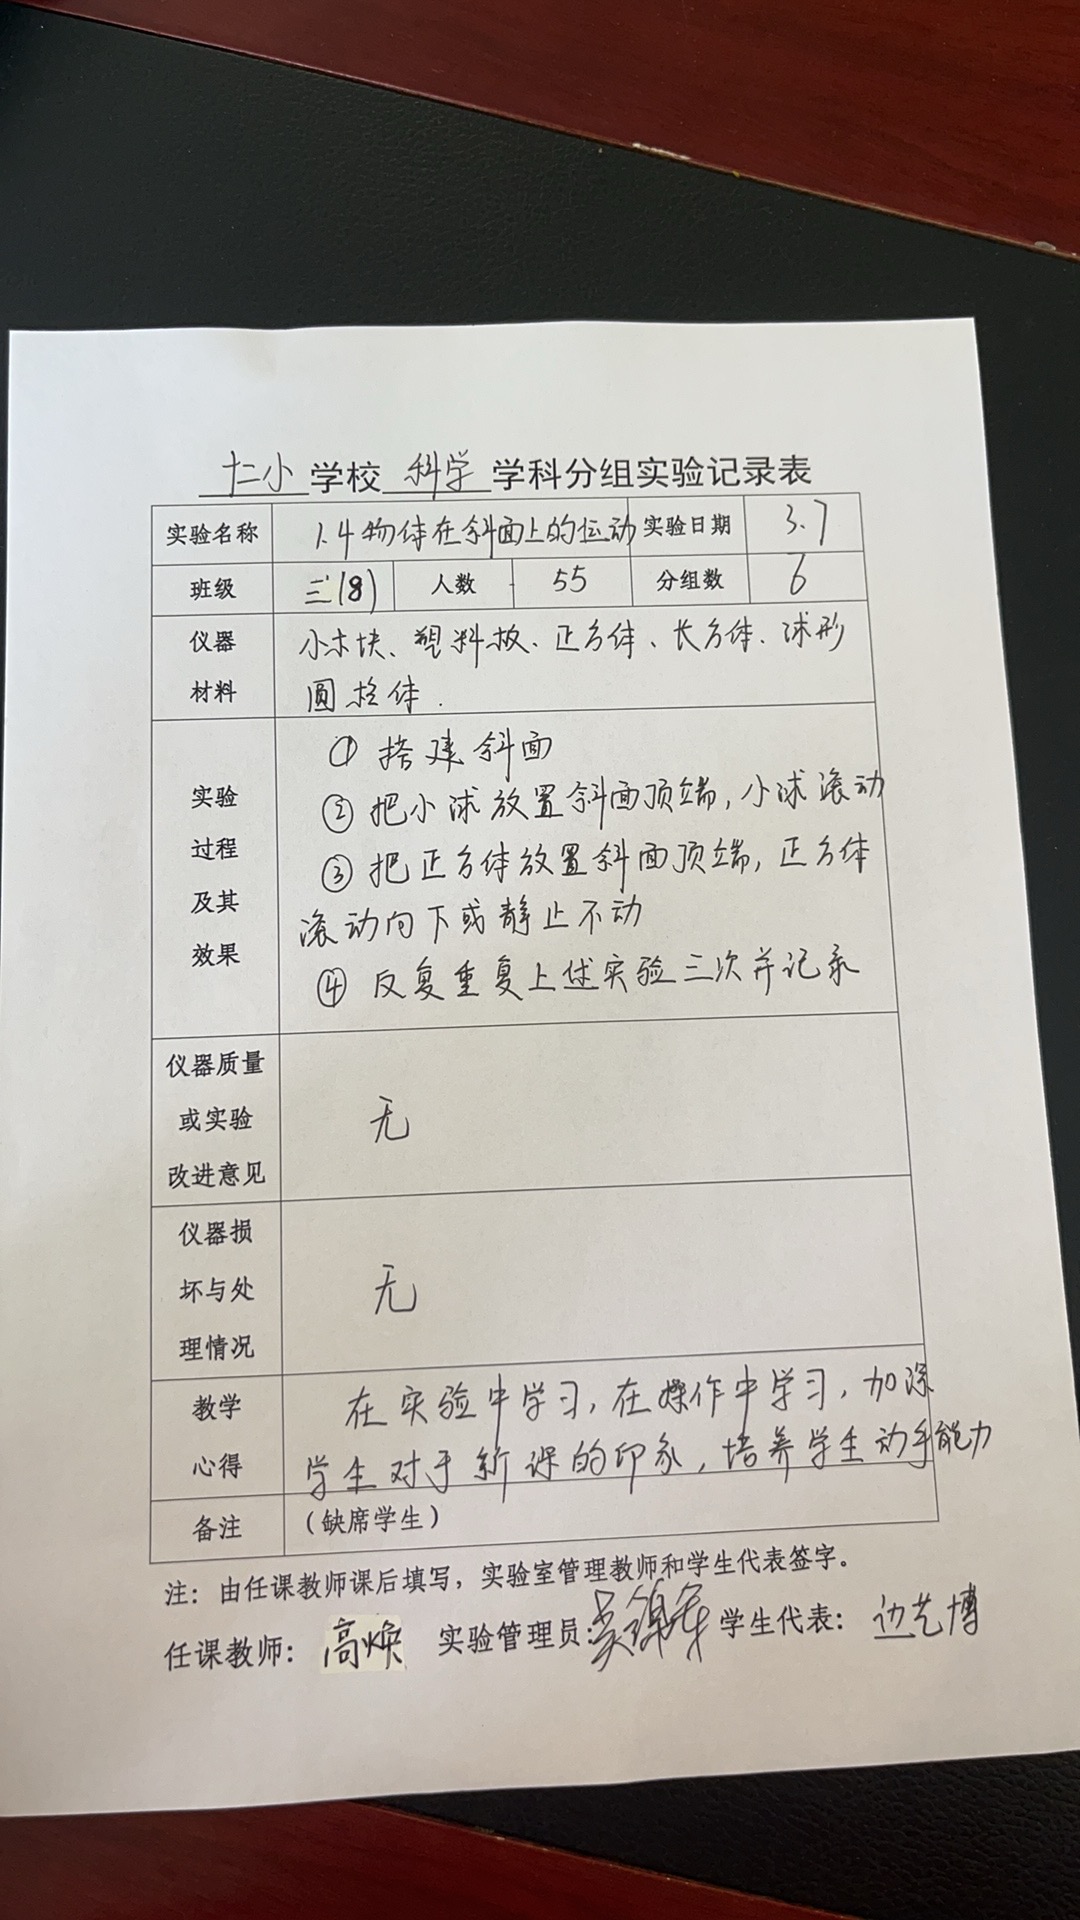 十二小学校 科学 学科分组实验记录表
实验名称 1.4物体在斜面上的运动 实验日期 3.7
班级 三(8) 人数 55 分组数 6
仪器材料 小木块、塑料板、正方体、长方体、球形
圆柱体.
实验过程及其效果
① 搭建斜面
② 把小球放置斜面顶端,小球滚动
③ 把正方体放置斜面顶端,正方体
滚动向下或静止不动
④ 反复重复上述实验三次并记录
仪器质量
或实验
改进意见
无
仪器损
坏与处
理情况
无
教学心得
在实验中学习,在操作中学习,加深
学生对于新课的印象,培养学生动手能力
备注 (缺席学生)
注:由任课教师课后填写,实验室管理教师和学生代表签字。
任课教师: 高焕 实验管理员: 学生代表: 边艺博